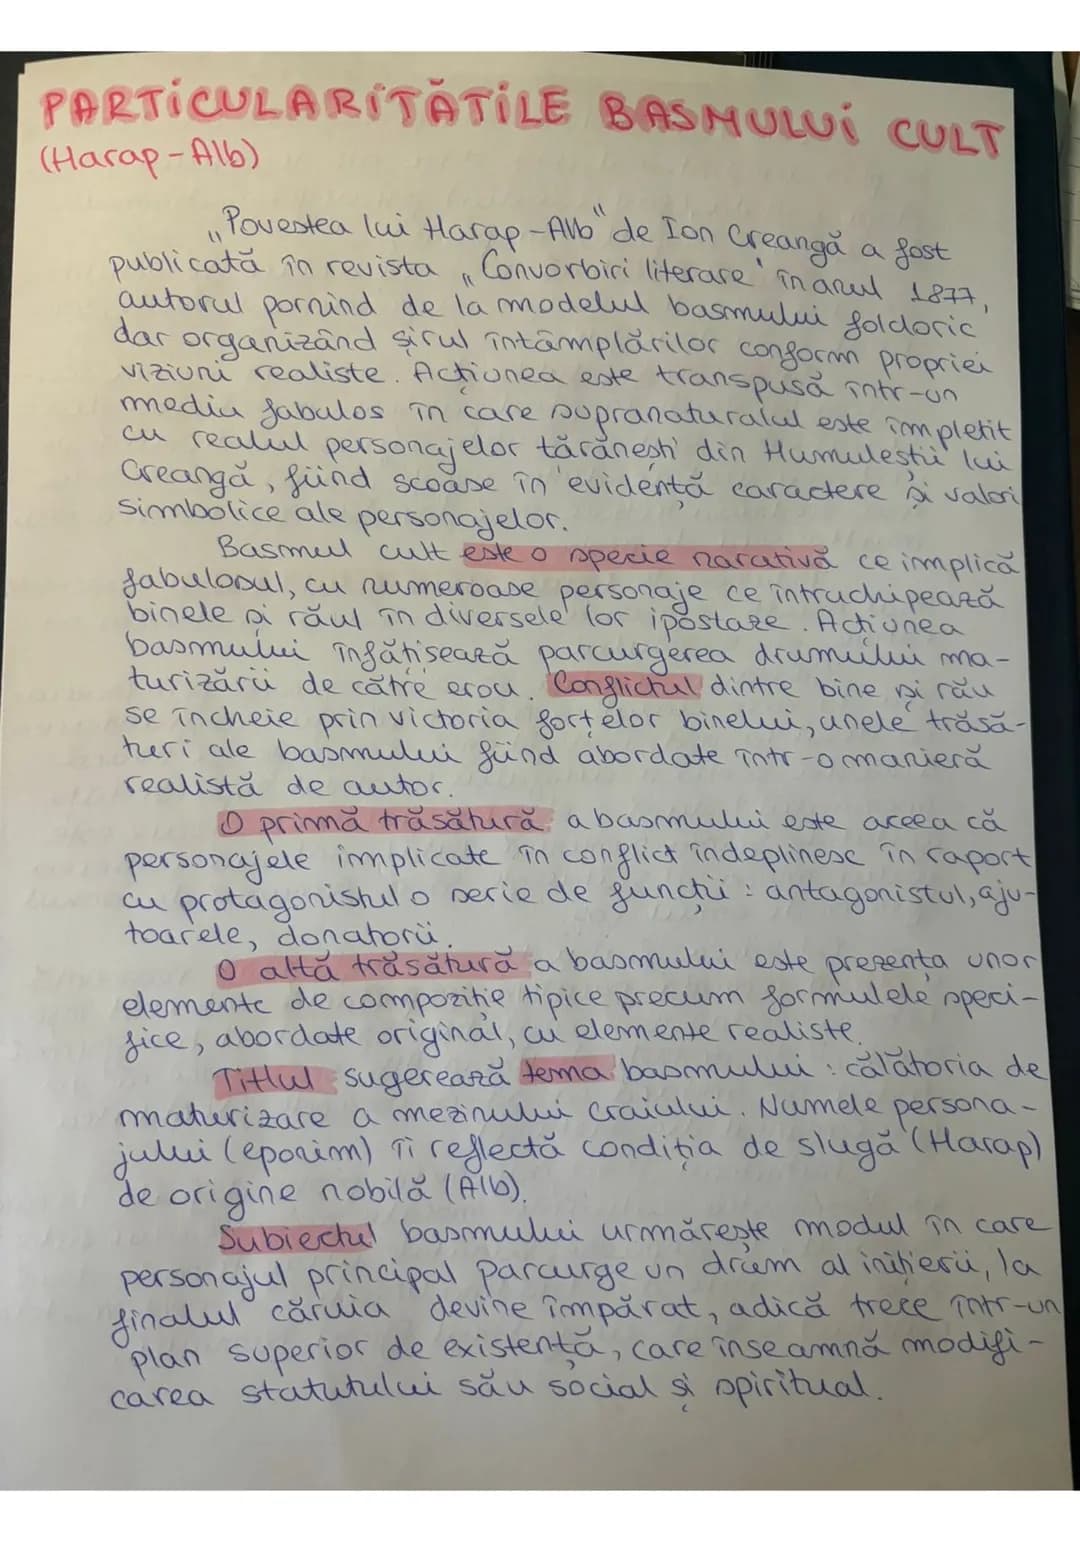 PARTICULARITĂȚILE BASMULUI CULT
(Harap-Alb)
„Povestea lui Harap-Alb" de Ion Creangă a fost
publicată în revista „Convorbiri literare" în anul 1877,
autorul pornind de la modelul basmului folcloric
dar organizând șirul întâmplărilor conform propriei
viziuni realiste. Acțiunea este transpusă într-un
mediu fabulos în care supranaturalul este împletit
cu realul personajelor țărănești din Humuleștii lui
Creangă, fiind scoase în evidență caractere și valori
simbolice ale personajelor.
Basmul cult este o specie narativă ce implică
fabulosul, cu numeroase personaje ce întruchipează
binele și răul în diversele lor ipostaze. Acțiunea
basmului înfățisează parcurgerea drumului ma-
turizării de către erou. Conflictul dintre bine și rău
se încheie prin victoria forțelor binelui, unele trăsă-
turi ale basmului fiind abordate într-o manieră
realistă de autor.
O primă trăsătură a basmului este aceea că
personajele implicate în conflict îndeplinesc în raport
cu protagonistul o serie de funcții: antagonistul, aju-
toarele, donatorii.
O altă trăsătură a basmului este prezența unor
elemente de compoziție tipice precum formulele speci-
fice, abordate original, cu elemente realiste.
Titlul sugerează tema basmului: călătoria de
maturizare a mezinului craiului. Numele persona-
jului (eponim) îi reflectă condiția de slugă (Harap)
de origine nobilă (Alb).
Subiectul basmului urmărește modul în care
personajul principal parcurge un drum al inițierii, la
finalul căruia devine împărat, adică trece într-un
plan superior de existență, care înseamnă modifi-
carea statutului său social și spiritual.